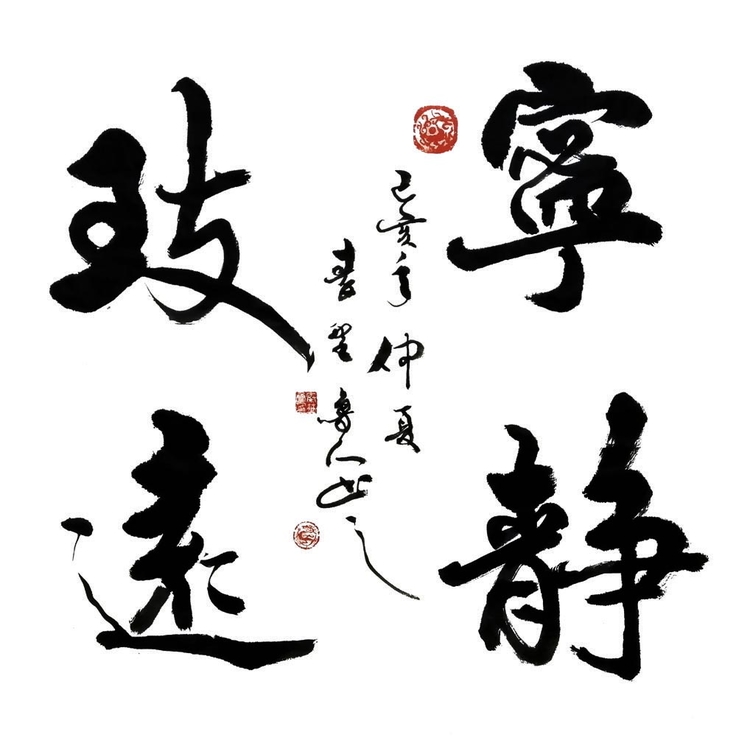 寧靜
致遠
己亥年仲夏
書聖魯人書之